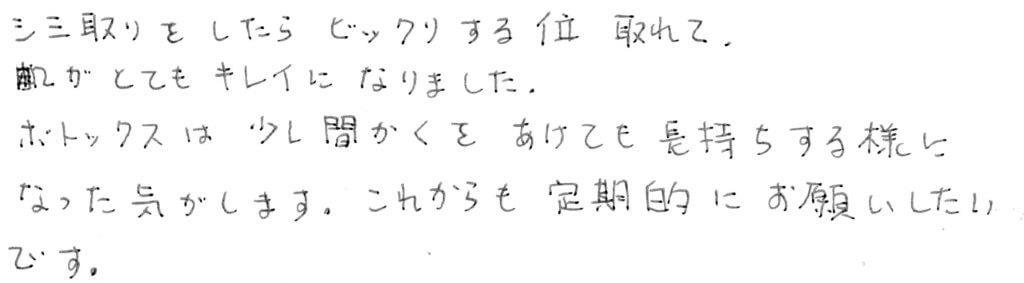 シミ取りをしたらビックリする位 取れて、
肌がとてもキレイになりました。
ボトックスは 少し間かくを あけても長持ちする様に
なった気がします。これからも 定期的に お願いしたい
です。